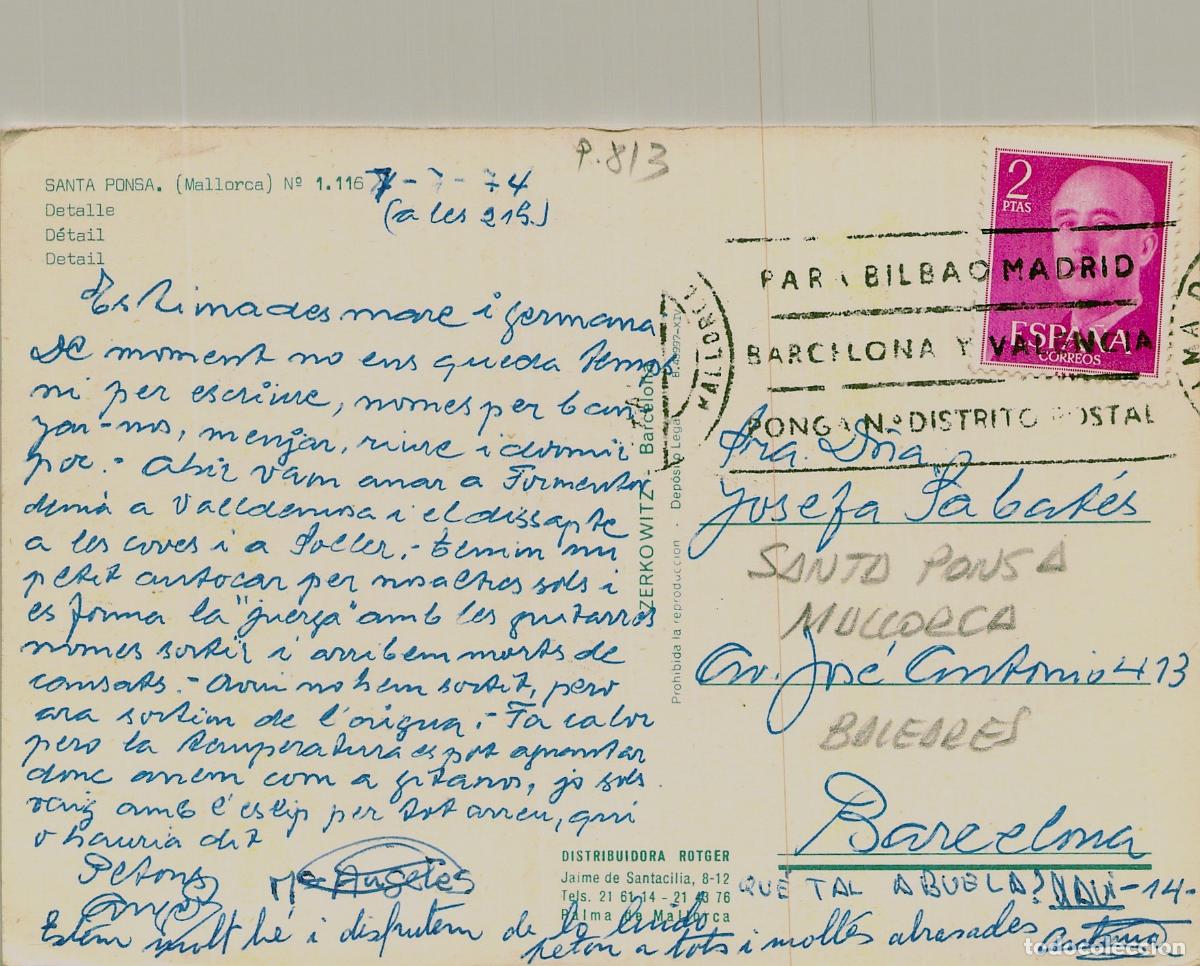 P.813
SANTA PONSA. (Mallorca) Nº 1.116
Detalle
Détail
Detail
7-7-74
(a les 21h.)
Estimades mare i germana
De moment no ens queda temps
ni per escriure, nomes per ban
yar-nos, menjar, riure i dormir
poc.- Ahir vam anar a Formentor
demà a Valldemosa i el dissapte
a les coves i a Soller.- Tenim un
petit autocar per nosaltres sols i
es forma la "juerga" amb les guitarres
nomes sortir i arribem morts de
cansats.- Avui no hem sortit, pero
ara sortim de l'aigua.- Fa calor
pero la temperatura es pot aguantar
donc anem com a gitanos, jo sols
vaig amb l'eslip per tot arreu, qui
o hauria dit
Petons
Mª Angeles
Estem molt bé i disfrutem de lo lindo
peton a tots i moltes abrasades
2
PTAS
ESPAÑA
CORREOS
MALLORCA
PARA BILBAO MADRID
BARCELONA Y VALENCIA
PONGA Nº DISTRITO POSTAL
Sra. Dña
Josefa Sabatés
SANTA PONSA
MALLORCA
Av. José Antonio 413
BALEARES
Barcelona
QUÉ TAL ABUELA? XAVI-14-
ZERKOWITZ - Barcelona
Prohibida la reproducción - Depósito Legal
DISTRIBUIDORA ROTGER
Jaime de Santacilia, 8-12
Tels. 21 61 14 - 21 43 76
Palma de Mallorca
todocoleccion